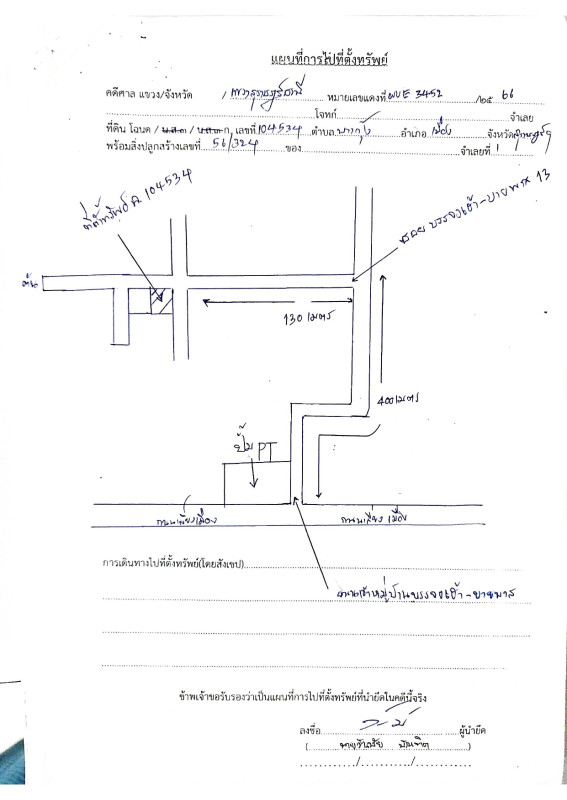 แผนที่การไปที่ตั้งทรัพย์
คดีศาล แขวง/จังหวัด / หมายเลขแดงที่ ผบE 3452 /๒๕ 66
โจทก์ จำเลย
ที่ดิน โฉนด / น.ส.๓ / น.ส.๓ ก. เลขที่ 104534 ตำบล บางกุ้ง อำเภอ เมือง จังหวัด สุราษฎร์ฯ
พร้อมสิ่งปลูกสร้างเลขที่ 56/324 ของ จำเลยที่ 1
ที่ตั้งทรัพย์ ฉ. 104534
ซอย บรรจงเข้า-นายพาส 13
ตัน
130 เมตร
400 เมตร
ปั๊ม PT
ถนนเลี่ยงเมือง
ถนนเลี่ยงเมือง
การเดินทางไปที่ตั้งทรัพย์(โดยสังเขป)
หมู่บ้านบรรจงเข้า-นายพาส
ข้าพเจ้าขอรับรองว่าเป็นแผนที่การไปที่ตั้งทรัพย์ที่นำยึดในคดีนี้จริง
ลงชื่อ ผู้นำยึด
( )
/ /